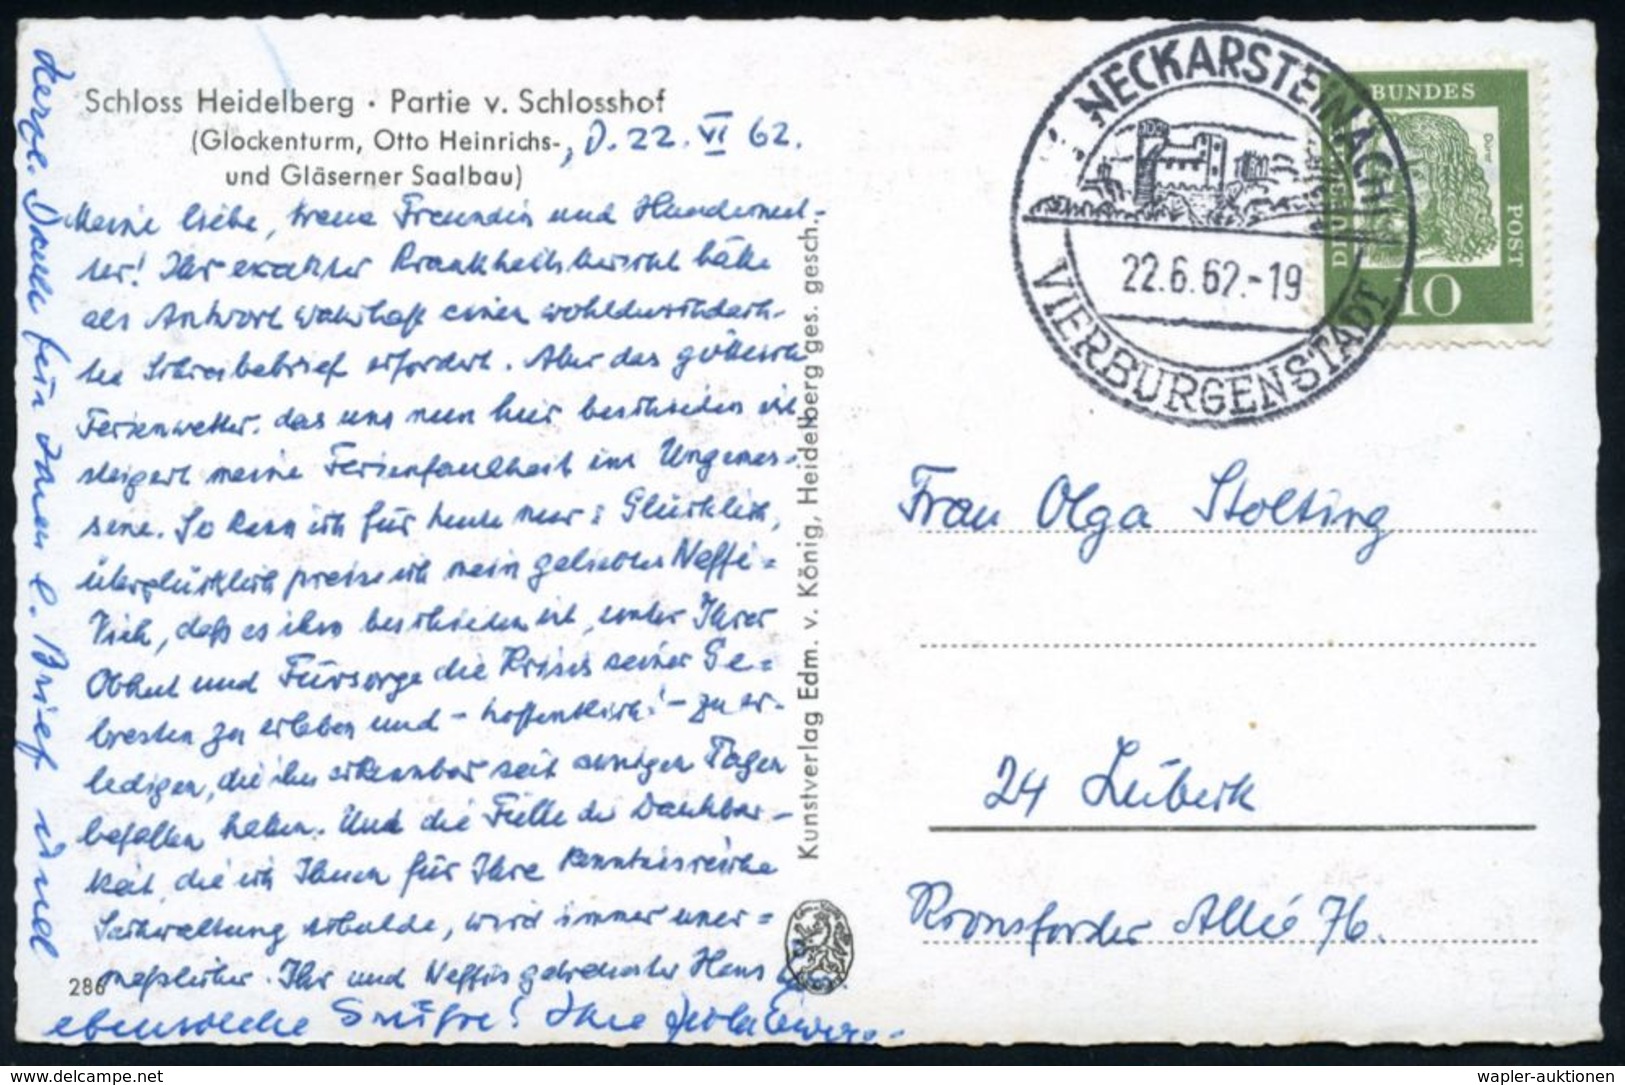 Schloss Heidelberg · Partie v. Schlosshof
(Glockenturm, Otto Heinrichs-
und Gläserner Saalbau)
D. 22. VI 62.
Meine liebe, treue Freundin und Hundemut-
ter! Ihr exakter Krankheitsbericht hätte
als Antwort wahrhaft einen wohldurchdach-
ten Schreibebrief erfordert. Aber das göttliche
Ferienwetter, das uns nun hier beschieden ist
steigert meine Ferienfaulheit ins Ungemes-
sene. So kann ich für heute nur: Glücklich,
überglücklich preise ich mein geliebtes Neffi-
Vieh, daß es ihm beschieden ist, unter Ihrer
Obhut und Fürsorge die Krisis seiner Ge-
bresten zu erleben und - hoffentlich! - zu er-
ledigen, die ihn erkennbar seit einigen Tagen
befallen haben. Und die Fülle der Dankbar-
keit, die ich Ihnen für Ihre kenntnisreiche
Sachwaltung schulde, wird immer uner-
meßlicher. Ihr und Neffis getreuester Hans
ebensolche Grüße! Ihre
Herzl. Dank für Ihren l. Brief und
286
Kunstverlag Edm. v. König, Heidelberg ges. gesch.
NECKARSTEINACH
22.6.62.-19
VIERBURGENSTADT
DEUTSCHE BUNDESPOST
Dürer
10
Frau Olga Stolting
24 Lübeck
Kronsforder Allee 76.
www.delcampe.net
wapler-auktionen